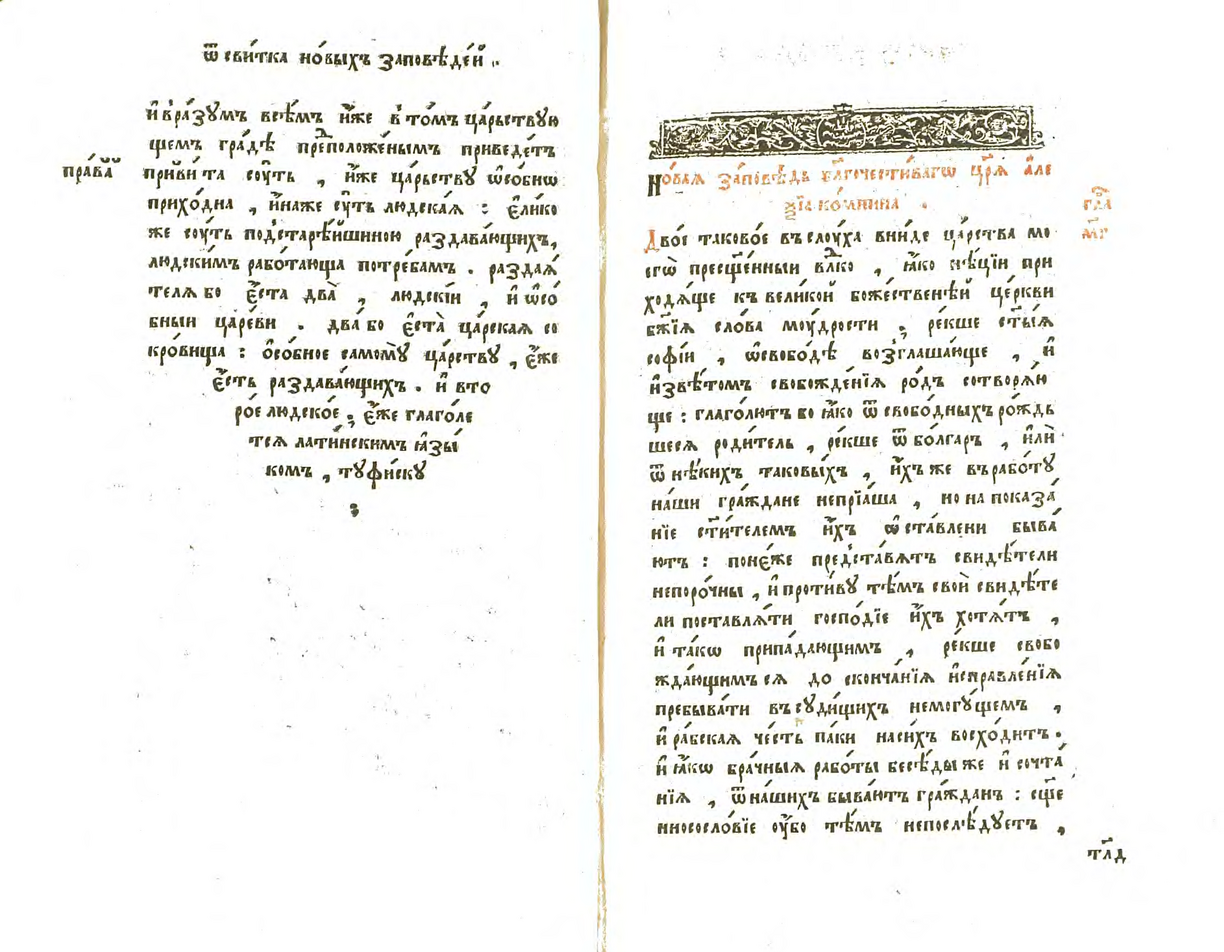 ѿ сви́тка но́выхъ заповѣ́дей .
и҆ в̾ра́зꙋмъ всѣ́мъ и҆́же в̾ то́мъ ца́рьствꙋю
щемъ гра́дѣ преположе́нымъ приведе́тъ
пра́ва
приви́та сꙋ́ть , и҆́же ца́рьствꙋ ѡ҆со́бнѡ
прихо́дна , и҆́наже сꙋ́ть людска́ѧ : є҆ли́ко
же сꙋ́ть под̾старѣ́йшиною раздава́ющихъ,
лю́дскимъ рабо́тающа потре́бамъ . раздаѧ́
телѧ бо є҆́ста два̀ , лю́дскїи , и҆ ѡ҆со́
бныи царе́ви . два́ бо є҆ста̀ ца́рскаѧ со
кро́вища : ѻ҆со́бное самомꙋ̀ ца́рствꙋ , є҆́же
є҆́сть раздава́ющихъ . и҆ вто
ро́е людско́е , є҆́же глаго́ле
тсѧ лати́нскимъ ꙗ҆зы́
комъ , тꙋфи́скꙋ
но́ваѧ за́повѣдь бл҃гочести́вагѡ цр҃ѧ̀ а҆ле
ѯі́а ко́мнина .
гла̀
м҃г
Двое́ таково́е въ слꙋ́ха вни́де ца́рства мо
егѡ̀ пресщ҃е́нныи вл҃ко , ꙗ҆́ко нѣ́цїи при
ходѧ́ще къ вели́кой боже́ственнѣй це́ркви
бж҃їѧ сло́ва мꙋ́дрости , ре́кше ст҃ы́ѧ
софі́и , ѡ҆свобо́дѣ воз̾глаша́юще , и҆
и҆звѣ́томъ свобожде́нїѧ ро́дъ сотворѧ́ю
ще : глаго́лютъ бо ꙗ҆́ко ѿ свобо́дныхъ ро́ждь
шесѧ роди́тель , ре́кше ѿ бо́лгаръ , и҆лѝ
ѿ нѣ́кихъ таковы́хъ , и҆́хъ же въ рабо́тꙋ
на́ши гра́ждане непрїѧ́ша , но на показа́
нїе ст҃и́телемъ и҆́хъ ѡ҆ста́влени быва́
ютъ : поне́же предста́вѧтъ свидѣ́тели
непоро́чны , и҆ проти́вꙋ тѣ́мъ своѝ свидѣ́те
ли поставлѧ́ти госпо́дїе и҆́хъ хотѧ́тъ ,
и҆ та́кѡ припа́дающимъ , ре́кше свобо
жда́ющимсѧ до сконча́нїѧ и҆справле́нїѧ
пребыва́ти въ сꙋди́щихъ немогꙋ́щемъ ,
и҆ ра́бскаѧ че́сть па́ки на си́хъ восхо́дитъ .
и҆ ꙗ҆́кѡ бра́чныѧ рабо́ты бесѣ́ды же и҆ сочта́
нїѧ , ѿ на́шихъ быва́ютъ гра́жданъ : сщ҃е
нннососло́вїе ᲂу҆́бо тѣ́мъ непослѣ́дꙋетъ ,
тл҃д